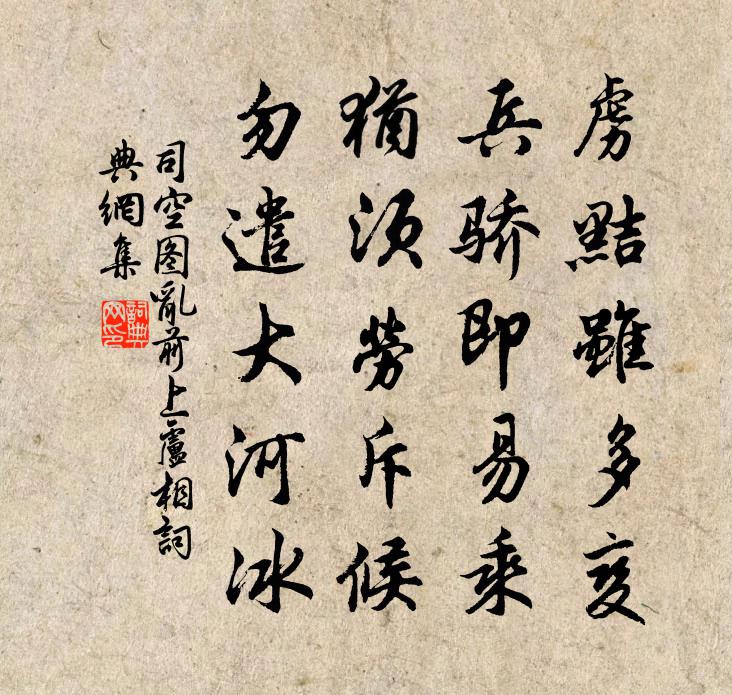 虏黠雖多變
兵骄即易乘
猶須勞斥候
勿遣大河冰
司空图亂前上盧相詞
典網集
詞典
网印